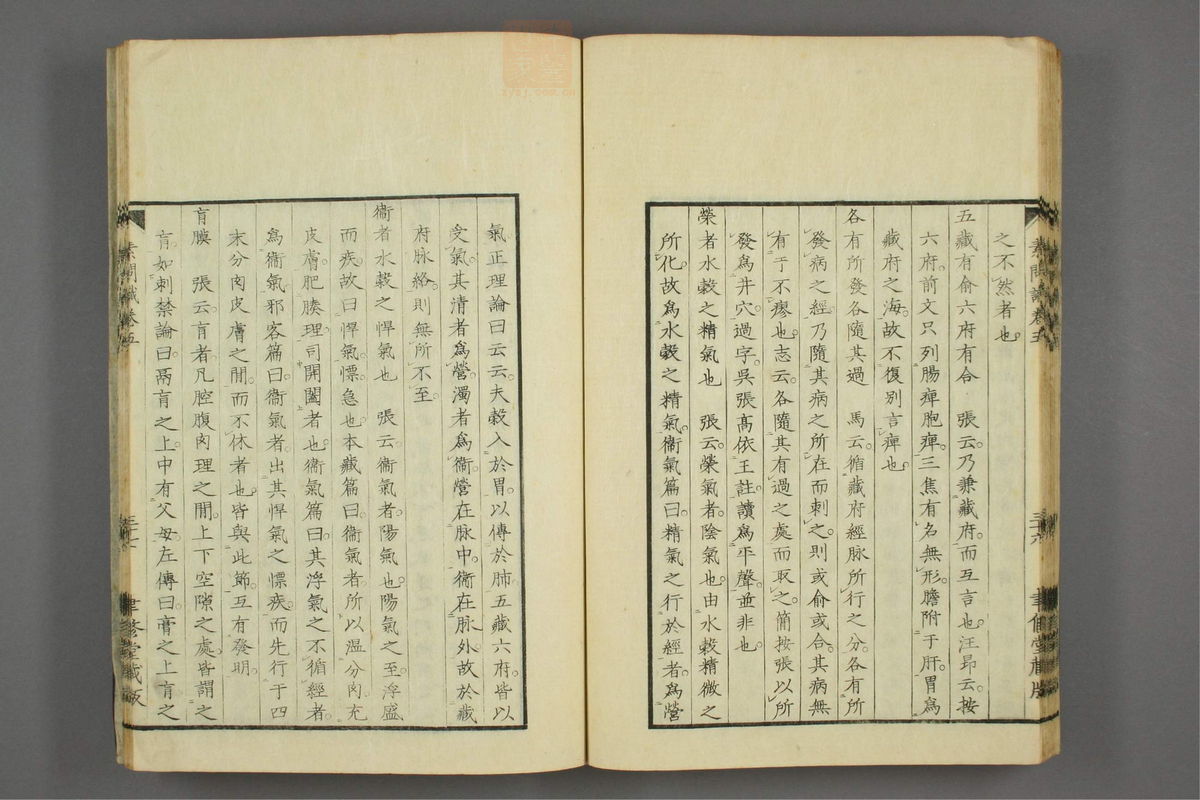 之不然者也
五藏有俞六府有合　張云乃兼藏府而互言也汪昂云按
六府前文只列腸痺胞痺三焦有名無形膽附于肝胃爲
藏府之海故不復別言痺也
各有所發各隨其過　馬云循藏府經脉所行之分各有所
發病之經乃隨其病之所在而刺之則或俞或合其病無
有于不瘳也志云各隨其有過之處而取之簡按張以所
發爲井穴過字吳張高依王註讀爲平聲並非也
榮者水穀之精氣也　張云榮氣者陰氣也由水穀精微之
所化故爲水穀之精氣衞氣篇曰精氣之行於經者爲營
氣正理論曰云云夫穀入於胃以傳於肺五藏六府皆以
受氣其清者爲營濁者爲衞營在脉中衞在脉外故於藏
府脉絡則無所不至
衞者水穀之悍氣也　張云衞氣者陽氣也陽氣之至浮盛
而疾故曰悍氣慓急也本藏篇曰衞氣者所以温分肉充
皮膚肥腠理司開闔者也衞氣篇曰其浮氣之不循經者
爲衞氣邪客篇曰衞氣者出其悍氣之慓疾而先行于四
末分肉皮膚之間而不休者也皆與此節互有發明
肓膜　張云肓者凡腔腹肉理之間上下空隙之處皆謂之
肓如刺禁論曰鬲肓之上中有父母左傳曰膏之上肓之
素問識卷五
三十六
聿修堂藏版